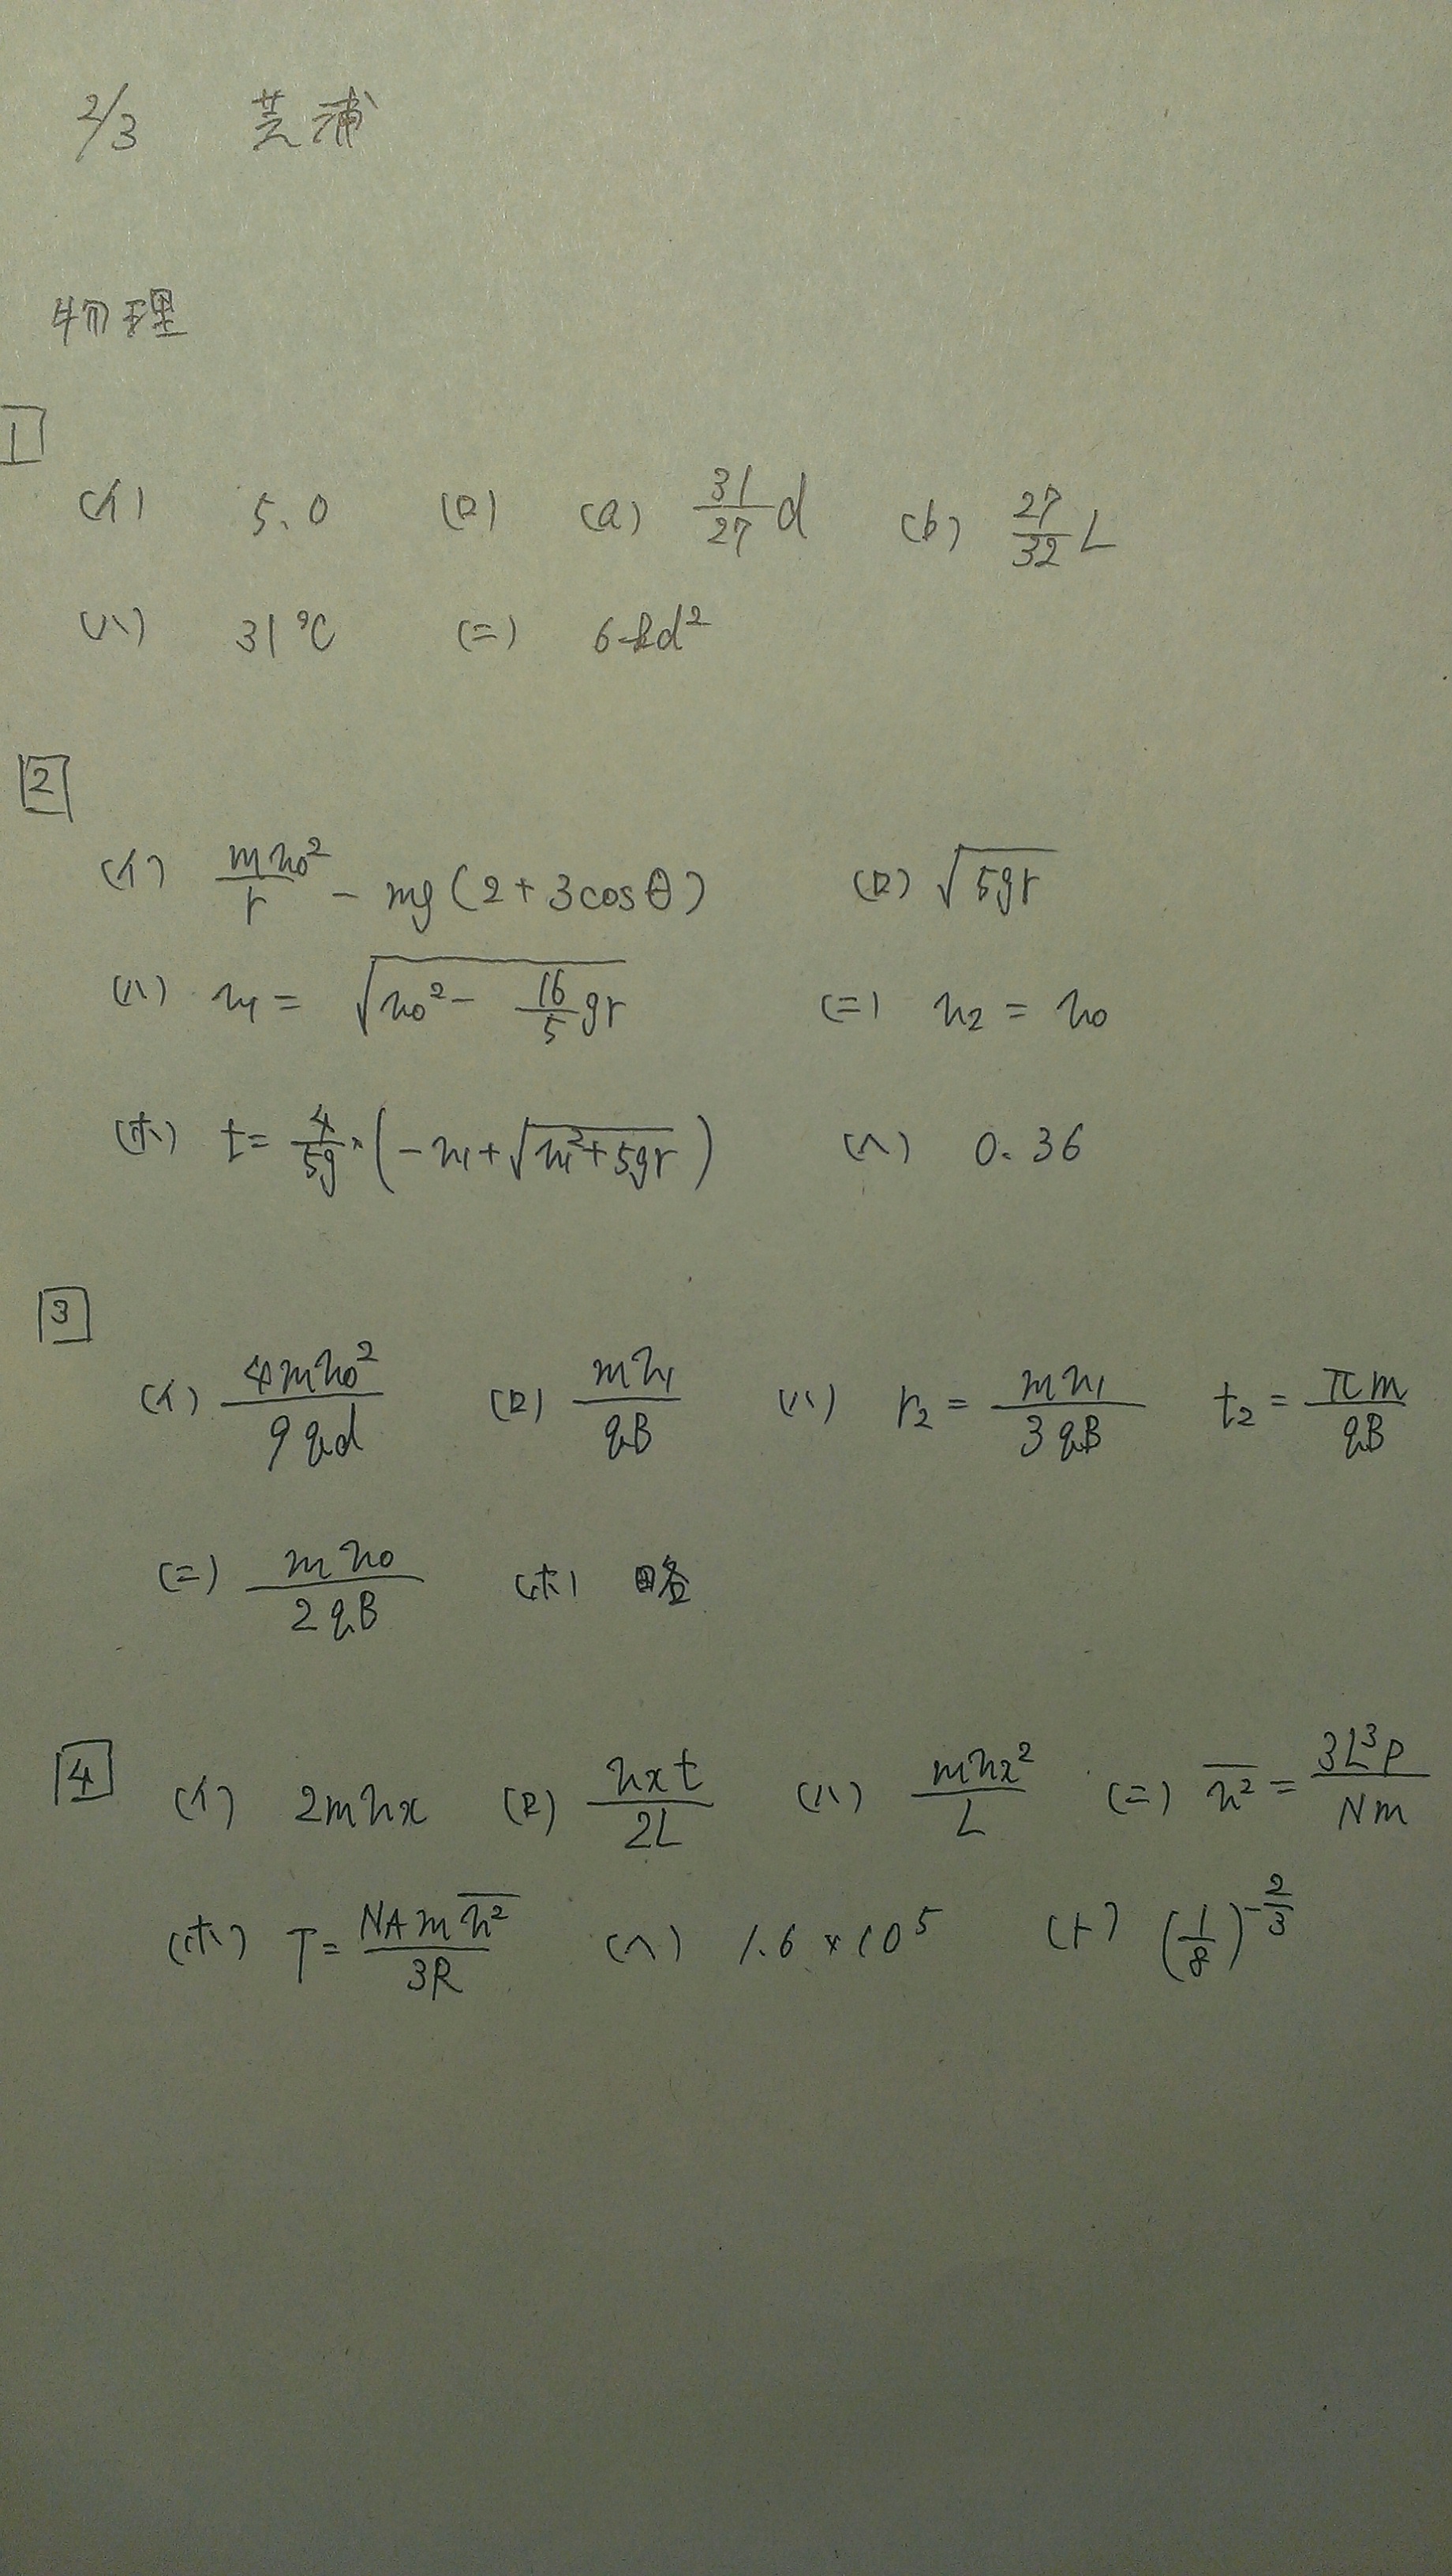 2/3 芝浦
物理
1
(イ) 5.0 (ロ) (a) 31/27 d (b) 27/32 L
(ハ) 31℃ (ニ) 6kd²
2
(イ) mv₀²/r - mg(2+3cosθ) (ロ) √(5gr)
(ハ) v₁ = √(v₀² - 16/5 gr) (ニ) v₂ = v₀
(ホ) t = 4/5g・(-v₁+√(v₁²+5gr)) (ヘ) 0.36
3
(イ) 4mv₀²/9qd (ロ) mv₁/qB (ハ) r₂ = mv₁/3qB t₂ = πm/qB
(ニ) mv₀/2qB (ホ) 略
4
(イ) 2mvx (ロ) vxt/2L (ハ) mvx²/L (ニ) v̅²̅ = 3L³P/Nm
(ホ) T = NAmv̅²̅/3R (ヘ) 1.6×10⁵ (ト) (1/8)^(-2/3)